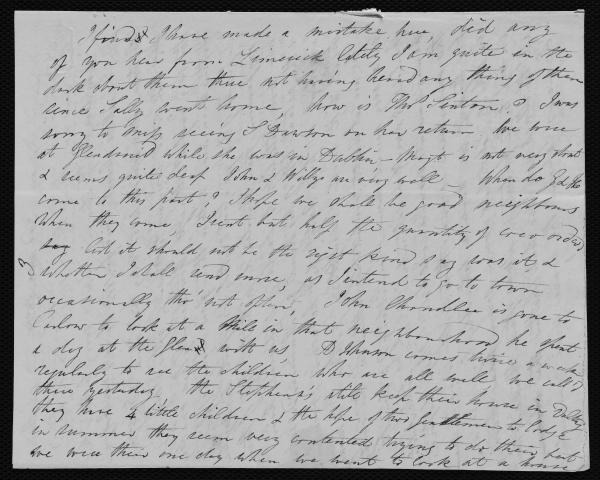 I find I have made a mistake here, did any
of you hear from Limerick lately I am quite in the
dark about them there not having heard any thing of them
since Sally went home, how is Thos Sinton? I was
sorry to miss seeing S Dawson on her return. We were
at Glendruid while she was in Dublin — Magt is not very stout
& seems quite deaf John & Willy are very well — When do
come to this part? I hope we shall be good neighbours
when they come, I sent but half the quantity of coco ordered
say lest it should not be the right kind say was it &
whether I shall send more, as I intend to go to town
occasionally tho' not often, John Chandlee is gone to
Carlow to look at a Mill in that neighbourhood he spent
a day at the Glen with us, D Johnson comes twice a week
regularly to see the children who are all well we call'd
there yesterday the Stephens's still keep their house in
they have 4 little children & the hope of two Gentlemen to lodge
in summer they seem very contented trying to do their best
we were there one day when we went to look at a house